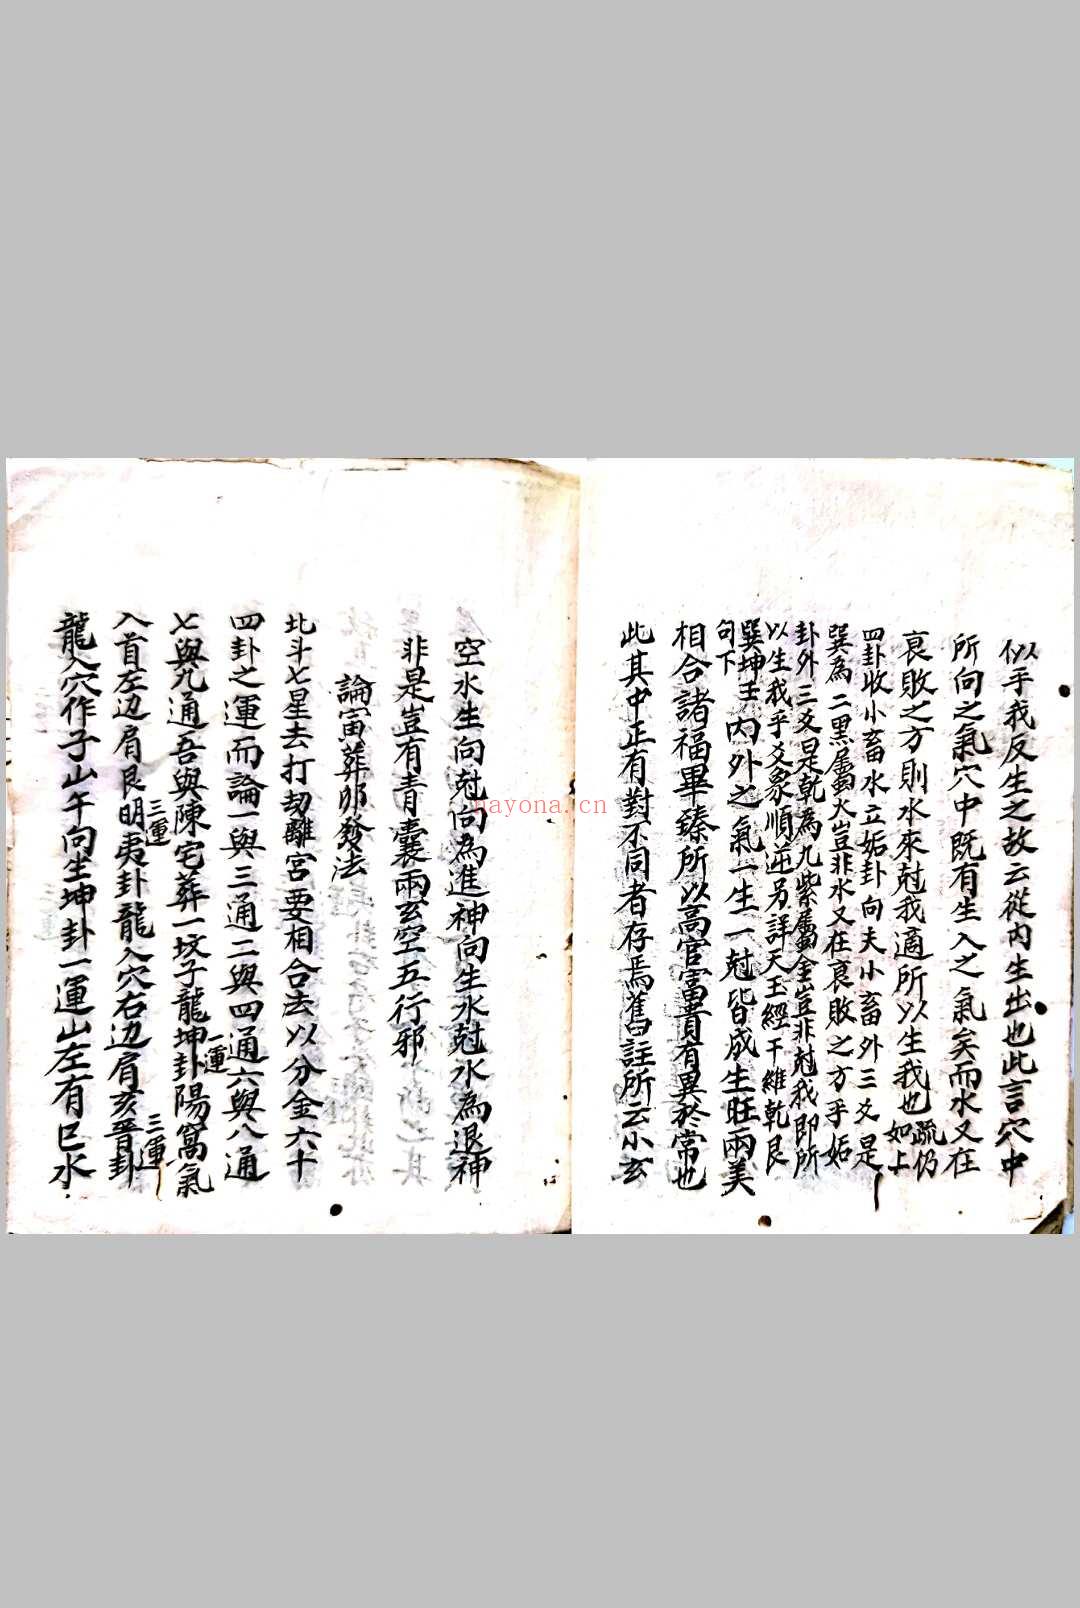 似乎我反生之故云從內生出也此言穴中
所向之氣穴中既有生入之氣矣而水又在
衰敗之方則水來尅我適所以生我也疏仍如上
四卦收小畜水立姤卦向夫小畜外三爻是
巽為二黑屬火豈非水又在衰敗之方乎姤
卦外三爻是乾為九紫屬金豈非尅我即所
以生我乎爻象順逆另詳天玉經干維乾艮
巽坤壬句下
內外之氣一生一尅皆成生旺兩美
相合諸福畢臻所以高官富貴有異於常也
此其中正有對不同者存焉舊註所云小玄
空水生向尅向為進神向生水尅水為退神
非是豈有青囊兩玄空五行邪
論寅葬卯發法
北斗七星去打劫離宮要相合法以分金六十
四卦之運而論一與三通二與四通六與八通
七與九通吾與陳宅葬一坟子龍坤卦一運陽窩氣
入首左边肩艮明夷卦三運龍入穴右边肩亥晉卦三運
龍入穴作子山午向坐坤卦一運山左有巳水
nayona.cn